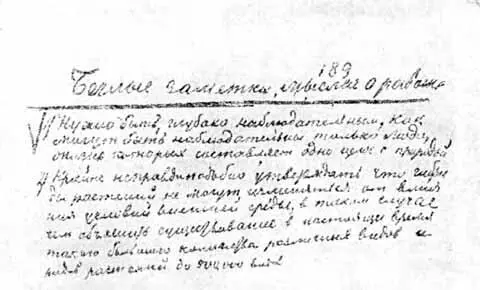 189
Беглые заметки, мысли о работе
Нужно быть глубоко наблюдательным, как
могут быть наблюдательны только люди,
жизнь которых составляет одно целое с природой
Крайне неправдоподобно утверждать что гибри-
ды растений не могут изменяться от влия-
ния условий внешней среды, в таком случае
чем объяснить существование в настоящее время
такого большого количества различных видов и
родов растений до 300000 видов